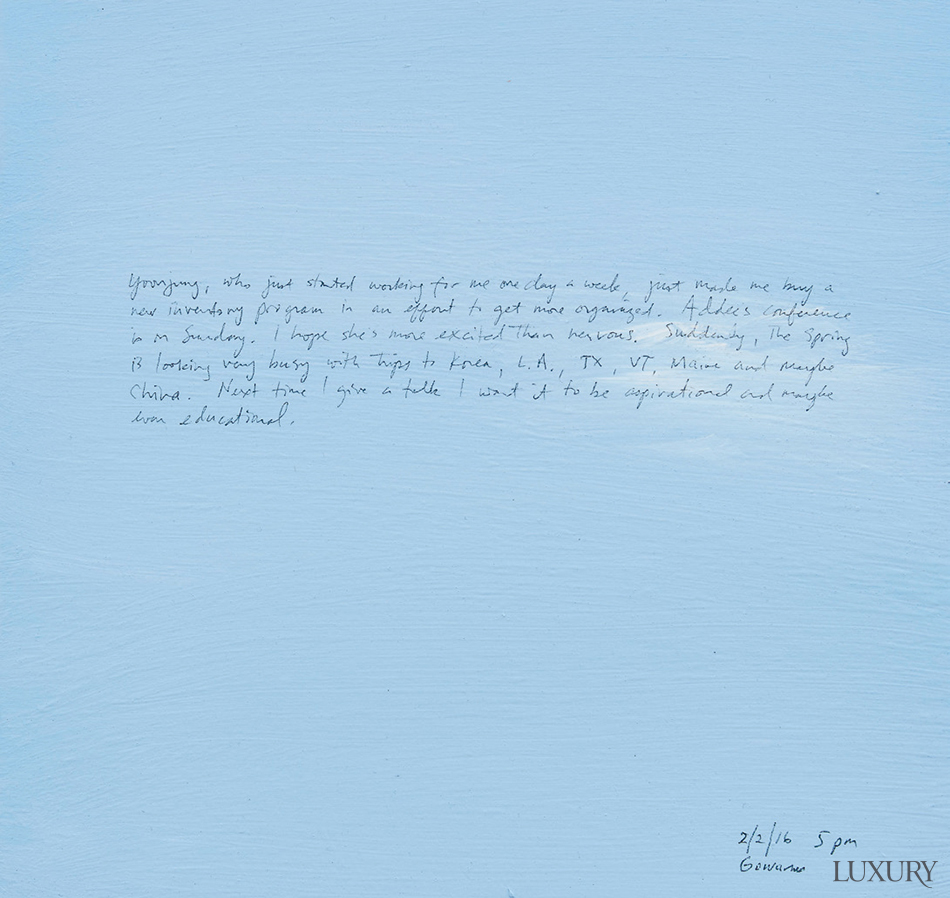 Yoonjung, who just started working for me one day a week, just made me buy a
new inventory program in an effort to get more organized. Addee's conference
is on Sunday. I hope she's more excited than nervous. Suddenly, the spring
is looking very busy with trips to Korea, L.A., TX, VT, Maine and maybe
China. Next time I give a talk I want it to be aspirational and maybe
even educational.
2/2/16 5 pm
Gowanus
LUXURY